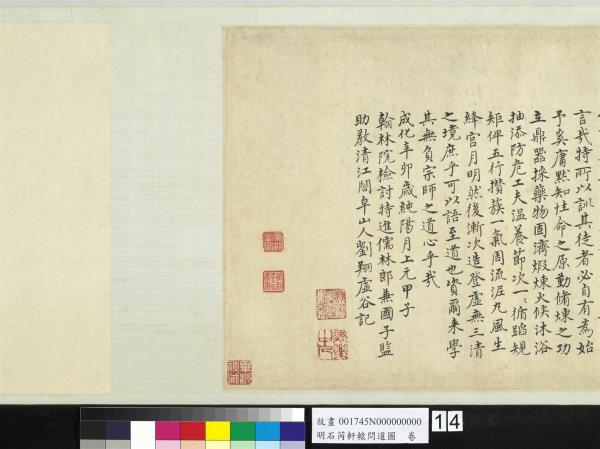 言我特所以訓其徒者必自有為始
予奚庸默知性命之原勤脩煉之功
立鼎器採藥物固濟煅煉火候沐浴
抽添防危工夫溫養節次一一循蹈規
矩俾五行攢簇一氣周流泥丸風生
絳宮月明然後漸次造登虛無三清
之境庶乎可以語至道也資爾來學
其無負宗師之道心乎哉
成化辛卯歲純陽月上元甲子
翰林院檢討特進儒林郎兼國子監
助教清江閤皁山人劉翔虛谷記
故畫 001745N000000000
明石芮軒轅問道圖 卷
14